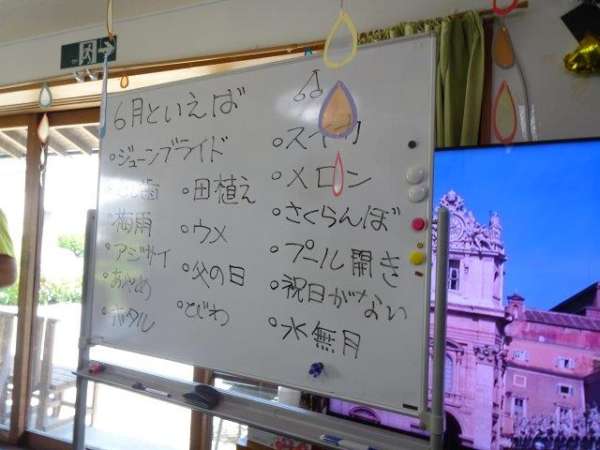 6月といえば
・ジューンブライド
歯
・梅雨
・アジサイ
・あやめ
・ホタル
・田植え
・ウメ
・父の日
・びわ
・スイカ
・メロン
・さくらんぼ
・プール開き
・祝日がない
・水無月